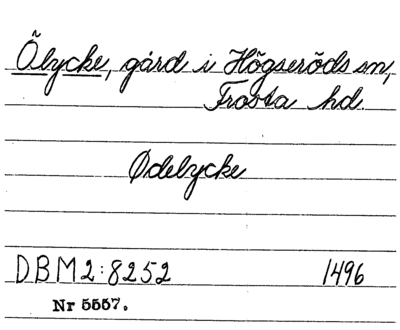 Õlycke, gård i Högseröds sn,
Frosta hd.
Ødelycke
DBM2:8252 1496
Nr 5557.